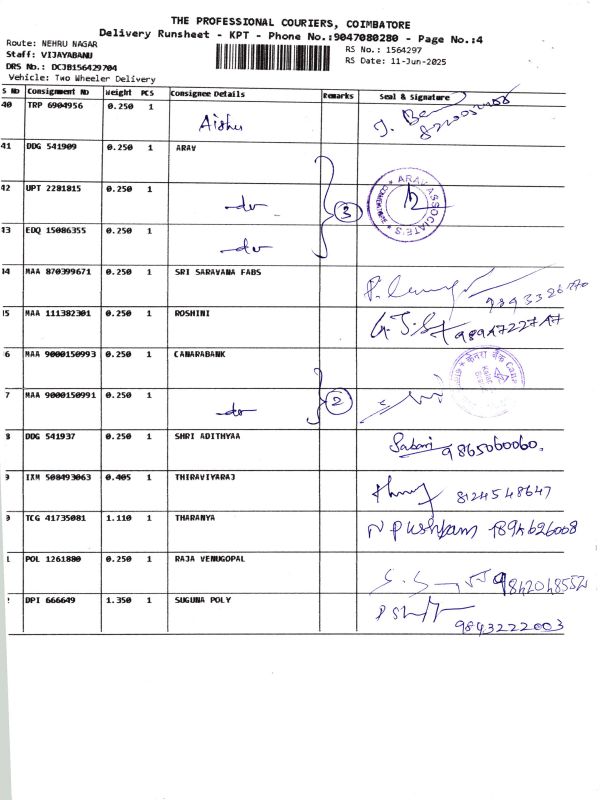 THE PROFESSIONAL COURIERS, COIMBATORE
Delivery Runsheet - KPT - Phone No.:9047080280 - Page No.:4
Route: NEHRU NAGAR
RS No.: 1564297
Staff: VIJAYABANU
RS Date: 11-Jun-2025
DRS No.: DCJB156429704
Vehicle: Two Wheeler Delivery
S NO Consignment NO Weight PCS Consignee Details Remarks Seal & Signature
40 TRP 6904956 0.250 1 Aishu
41 DDG 541909 0.250 1 ARAV
42 UPT 2281815 0.250 1 -do- 3 ARAV ASSOCIATE'S
43 EDQ 15086355 0.250 1 -do-
44 MAA 870399671 0.250 1 SRI SARAVANA FABS
5 MAA 111382301 0.250 1 ROSHINI 9894722747
6 MAA 9000150993 0.250 1 CANARABANK
7 MAA 9000150991 0.250 1 -do- 2
8 DDG 541937 0.250 1 SHRI ADITHYAA Sabari 9865060060.
9 IXM 508493063 0.405 1 THIRAVIYARAJ 8124548647
0 TCG 41735081 1.110 1 THARANYA N Pushpam
1 POL 1261880 0.250 1 RAJA VENUGOPAL 9842048552
2 DPI 666649 1.350 1 SUGUNA POLY
9843222003